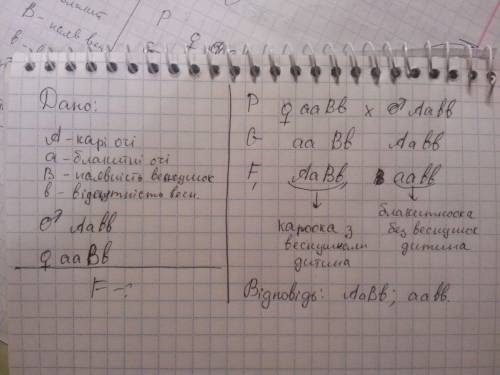 Дано:
А - карі очі
а - блакитні очі
В - наявність веснушок
в - відсутність весн.
♂ Аавв
♀ ааВв
F - ?
Р ♀ ааВв х ♂ Аавв
G аа Вв Аавв
F₁ АаВв аавв
кароока з
веснушками
дитина
блакитноока
без веснушок
дитина
Відповідь: АаВв; аавв.